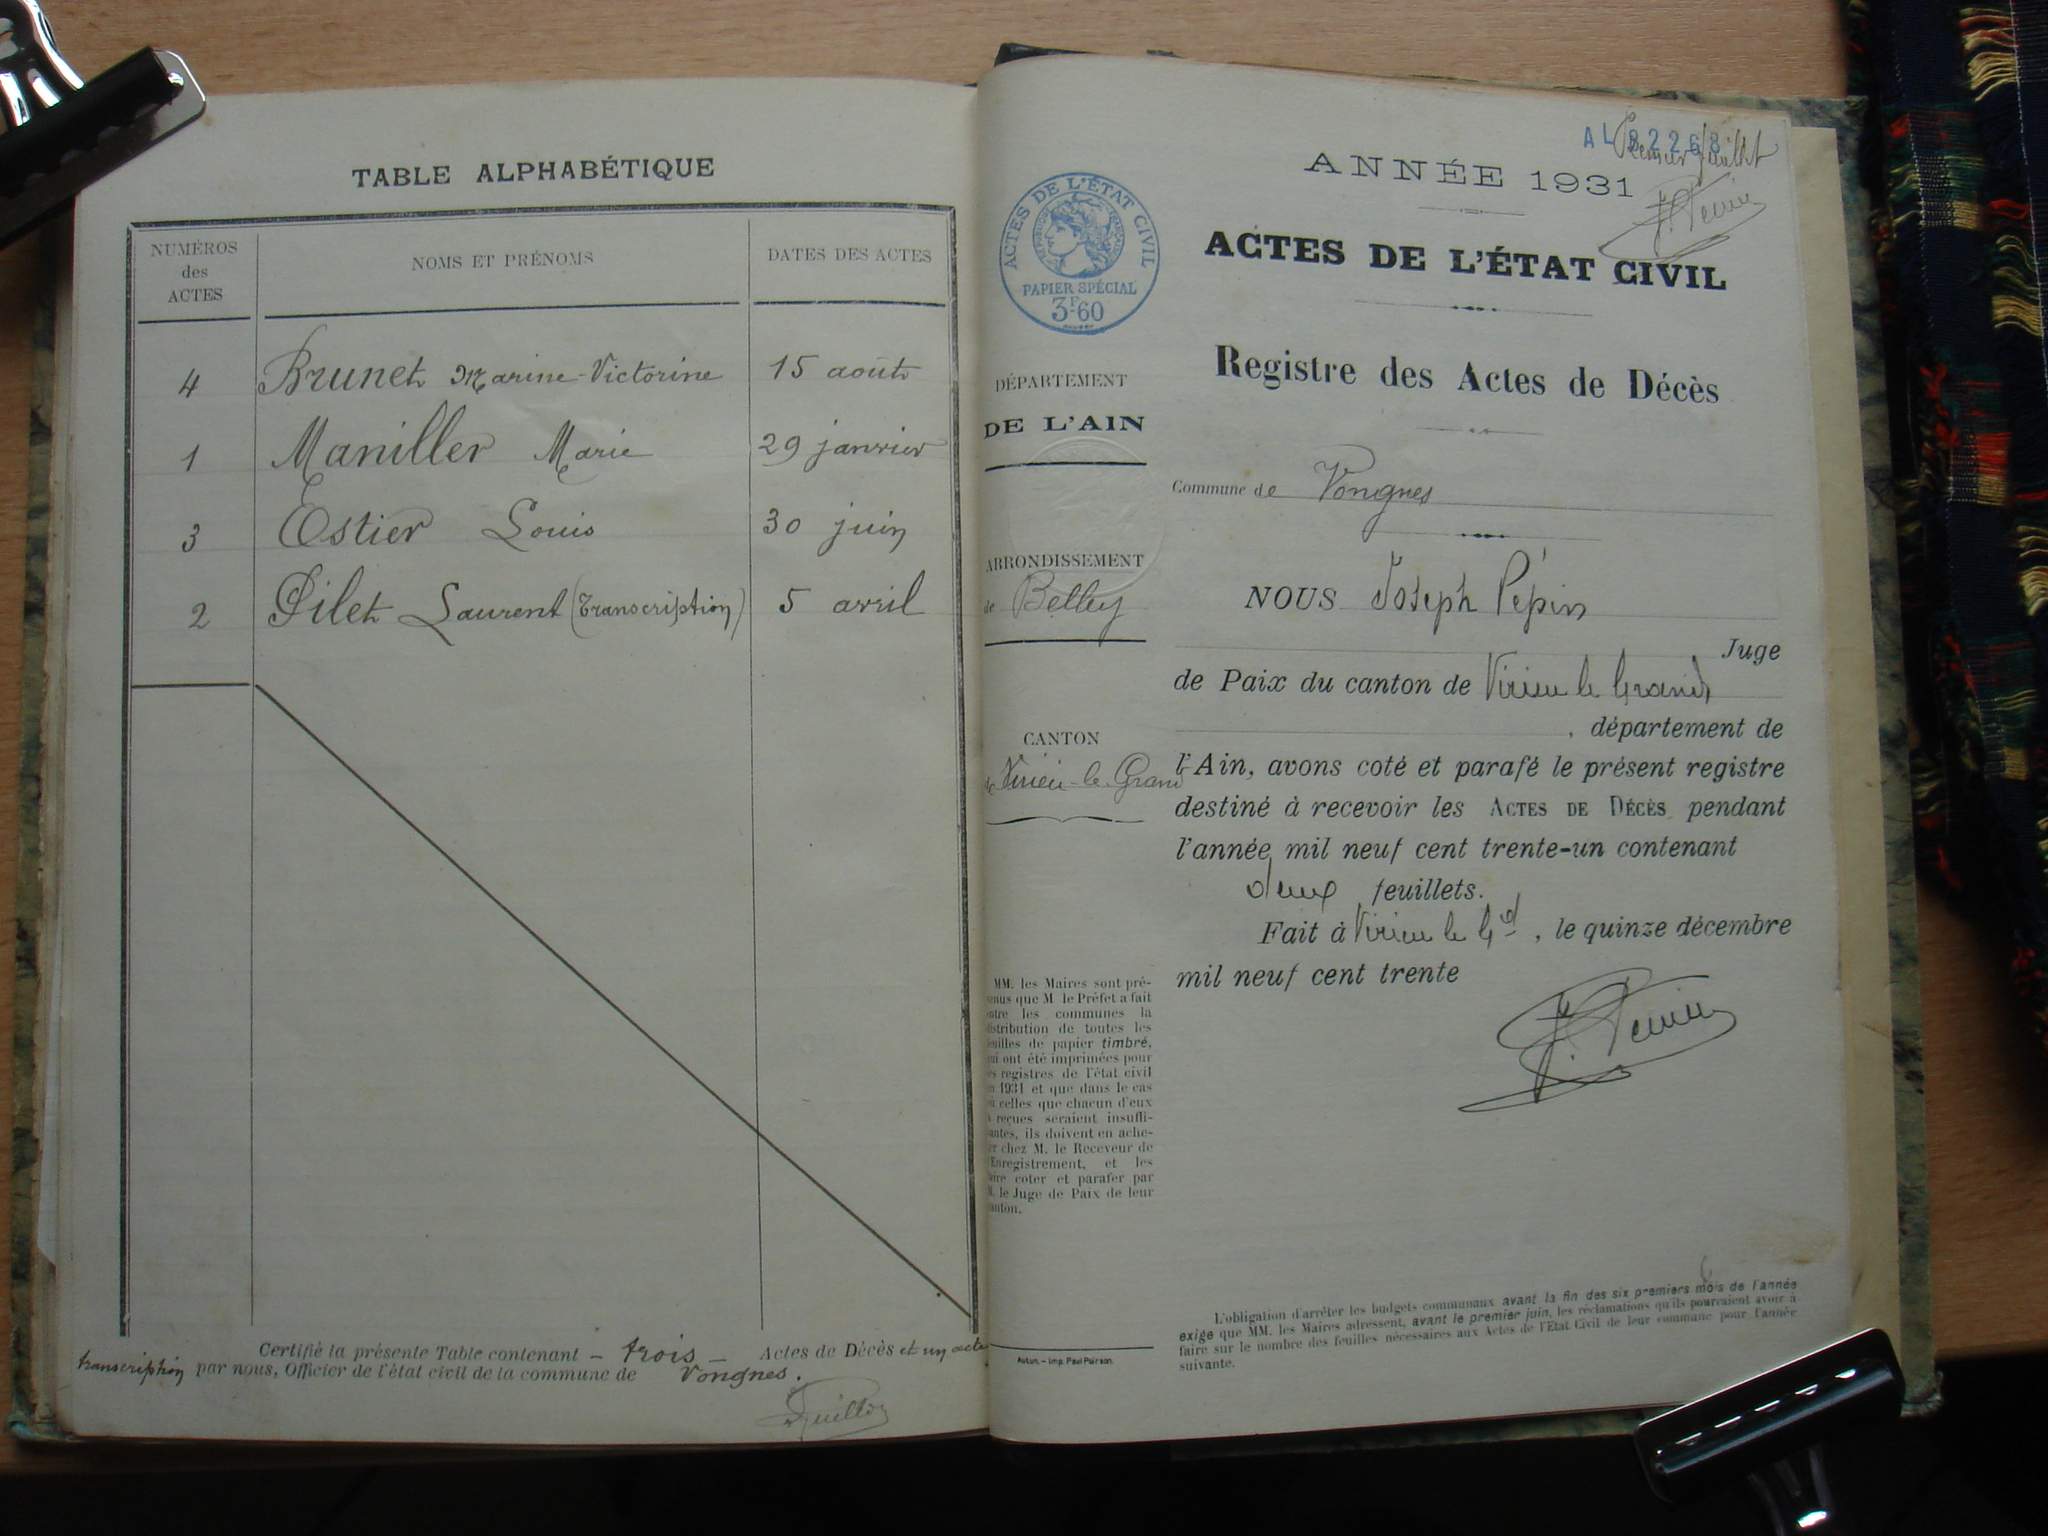 TABLE ALPHABÉTIQUE
NUMÉROS des ACTES NOMS ET PRÉNOMS DATES DES ACTES
4 Brunet Marine-Victorine 15 août
1 Maniller Marie 29 janvier
3 Ostier Louis 30 juin
2 Pilet Laurent (Transcription) 5 avril
Certifié la présente Table contenant - trois - Actes de Décès et un acte
transcription par nous, Officier de l'état civil de la commune de Vongnes.
AL 82268
Premier feuillet
ANNÉE 1931
ACTES DE L'ÉTAT CIVIL
RÉPUBLIQUE FRANÇAISE
PAPIER SPÉCIAL
3F.60
ACTES DE L'ÉTAT CIVIL
Registre des Actes de Décès
DÉPARTEMENT
DE L'AIN
ARRONDISSEMENT
de Belley
CANTON
de Virieu-le-Grand
MM. les Maires sont pré-
venus que M le Préfet a fait
entre les communes la
distribution de toutes les
feuilles de papier timbré,
qui ont été imprimées pour
les registres de l'état civil
en 1931 et que dans le cas
où celles que chacun d'eux
a reçues seraient insuffi-
santes, ils doivent en ache-
ter chez M. le Receveur de
l'Enregistrement, et les
faire coter et parafer par
M. le Juge de Paix de leur
canton.
Autun. - Imp. Paul Poirson.
Commune de Vongnes
NOUS Joseph Pépin
Juge
de Paix du canton de Virieu le Grand
, département de
l'Ain, avons coté et parafé le présent registre
destiné à recevoir les ACTES DE DÉCÈS pendant
l'année mil neuf cent trente-un contenant
deux feuillets.
Fait à Virieu le Gd, le quinze décembre
mil neuf cent trente
L'obligation d'arrêter les budgets communaux avant la fin des six premiers mois de l'année
exige que MM. les Maires adressent, avant le premier juin, les réclamations qu'ils pourraient avoir à
faire sur le nombre des feuilles nécessaires aux Actes de l'Etat Civil de leur commune pour l'année
suivante.